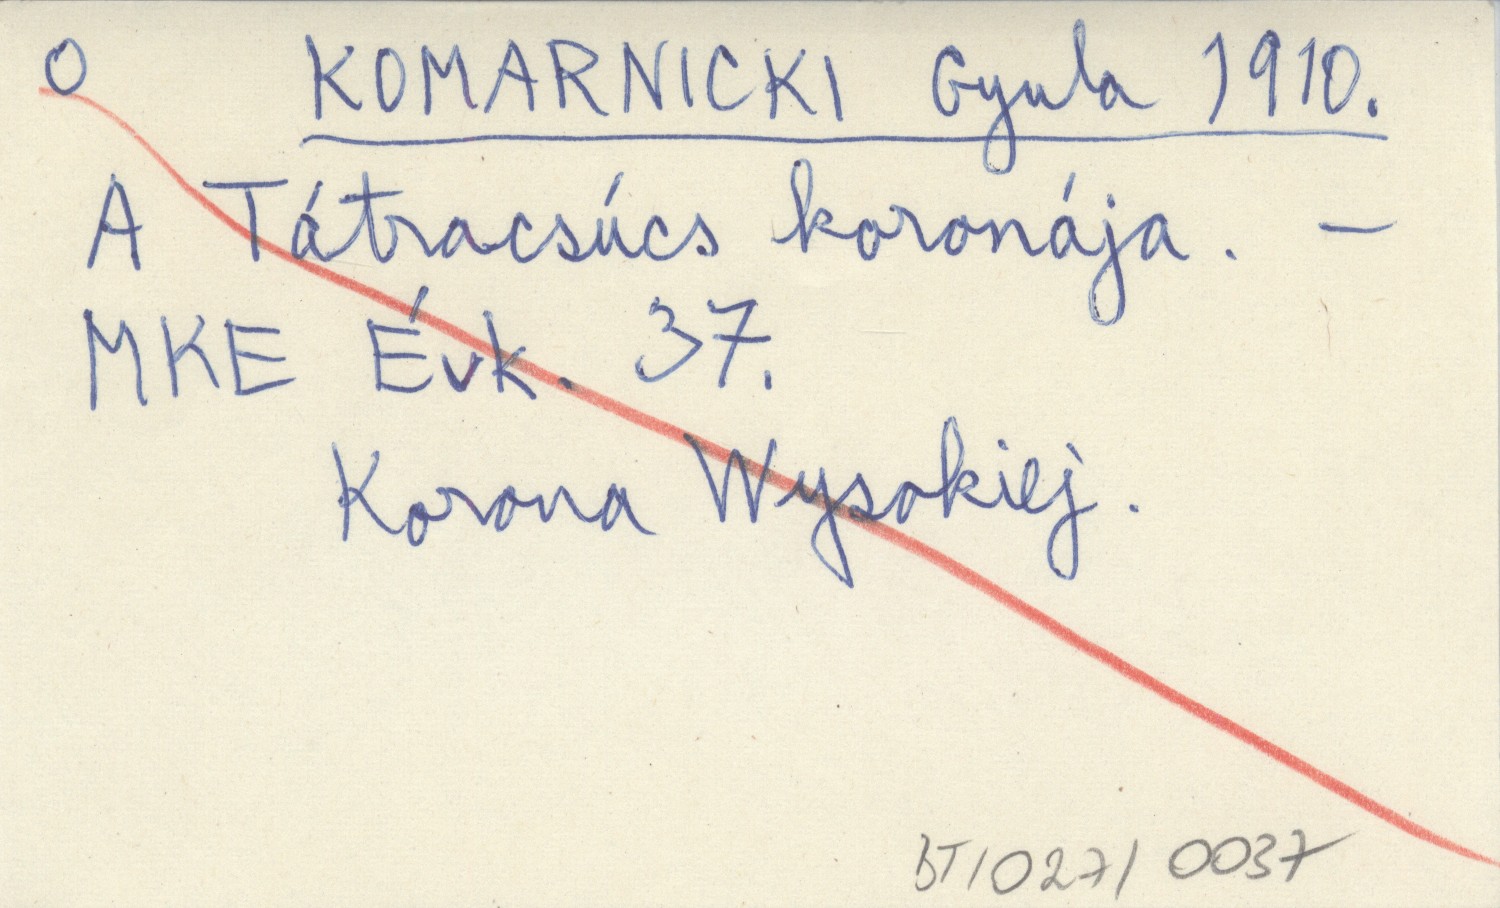 O KOMARNICKI Gyula 1910.
A Tátracsúcs koronája. —
MKE Évk. 37.
Korona Wysokiej.
BT/027/0037